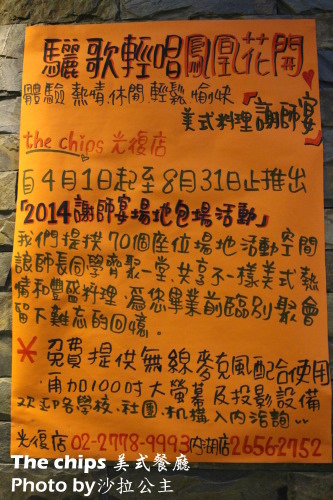 驪歌輕唱鳳凰花開
體驗熱情.休閒 輕鬆 愉快
美式料理『謝師宴』
the chips 光復店
自4月1日起至8月31日止推出
「2014謝師宴場地包場活動」
我們提供70個座位場地活動空間
讓師長同學齊聚一堂.共享不一樣美式熱
情和豐盛料理.為您畢業前臨別聚會
留下難忘的回憶。
*免費提供無線麥克風配合使用
.再加100吋大螢幕及投影設備
歡迎各學校.社團.機構入內洽詢..
光復店02-2778-9993內湖店26562752
The chips 美式餐廳
Photo by沙拉公主